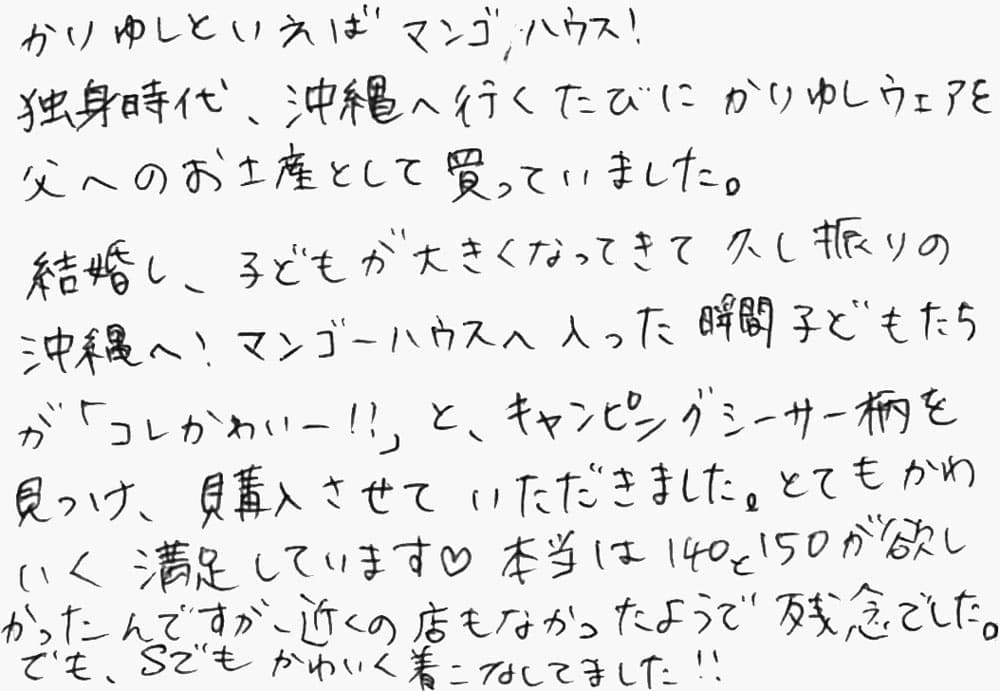 かりゆしといえばマンゴハウス!
独身時代、沖縄へ行くたびにかりゆしウェアを
父へのお土産として買っていました。
結婚し、子どもが大きくなってきて久し振りの
沖縄へ!マンゴーハウスへ入った瞬間子どもたち
が「コレかわいー!!」と、キャンピングシーサー柄を
見つけ、購入させていただきました。とてもかわ
いく満足しています♡本当は140と150が欲し
かったんですが、近くの店もなかったようで残念でした。
でも、Sでもかわいく着こなしてました!!